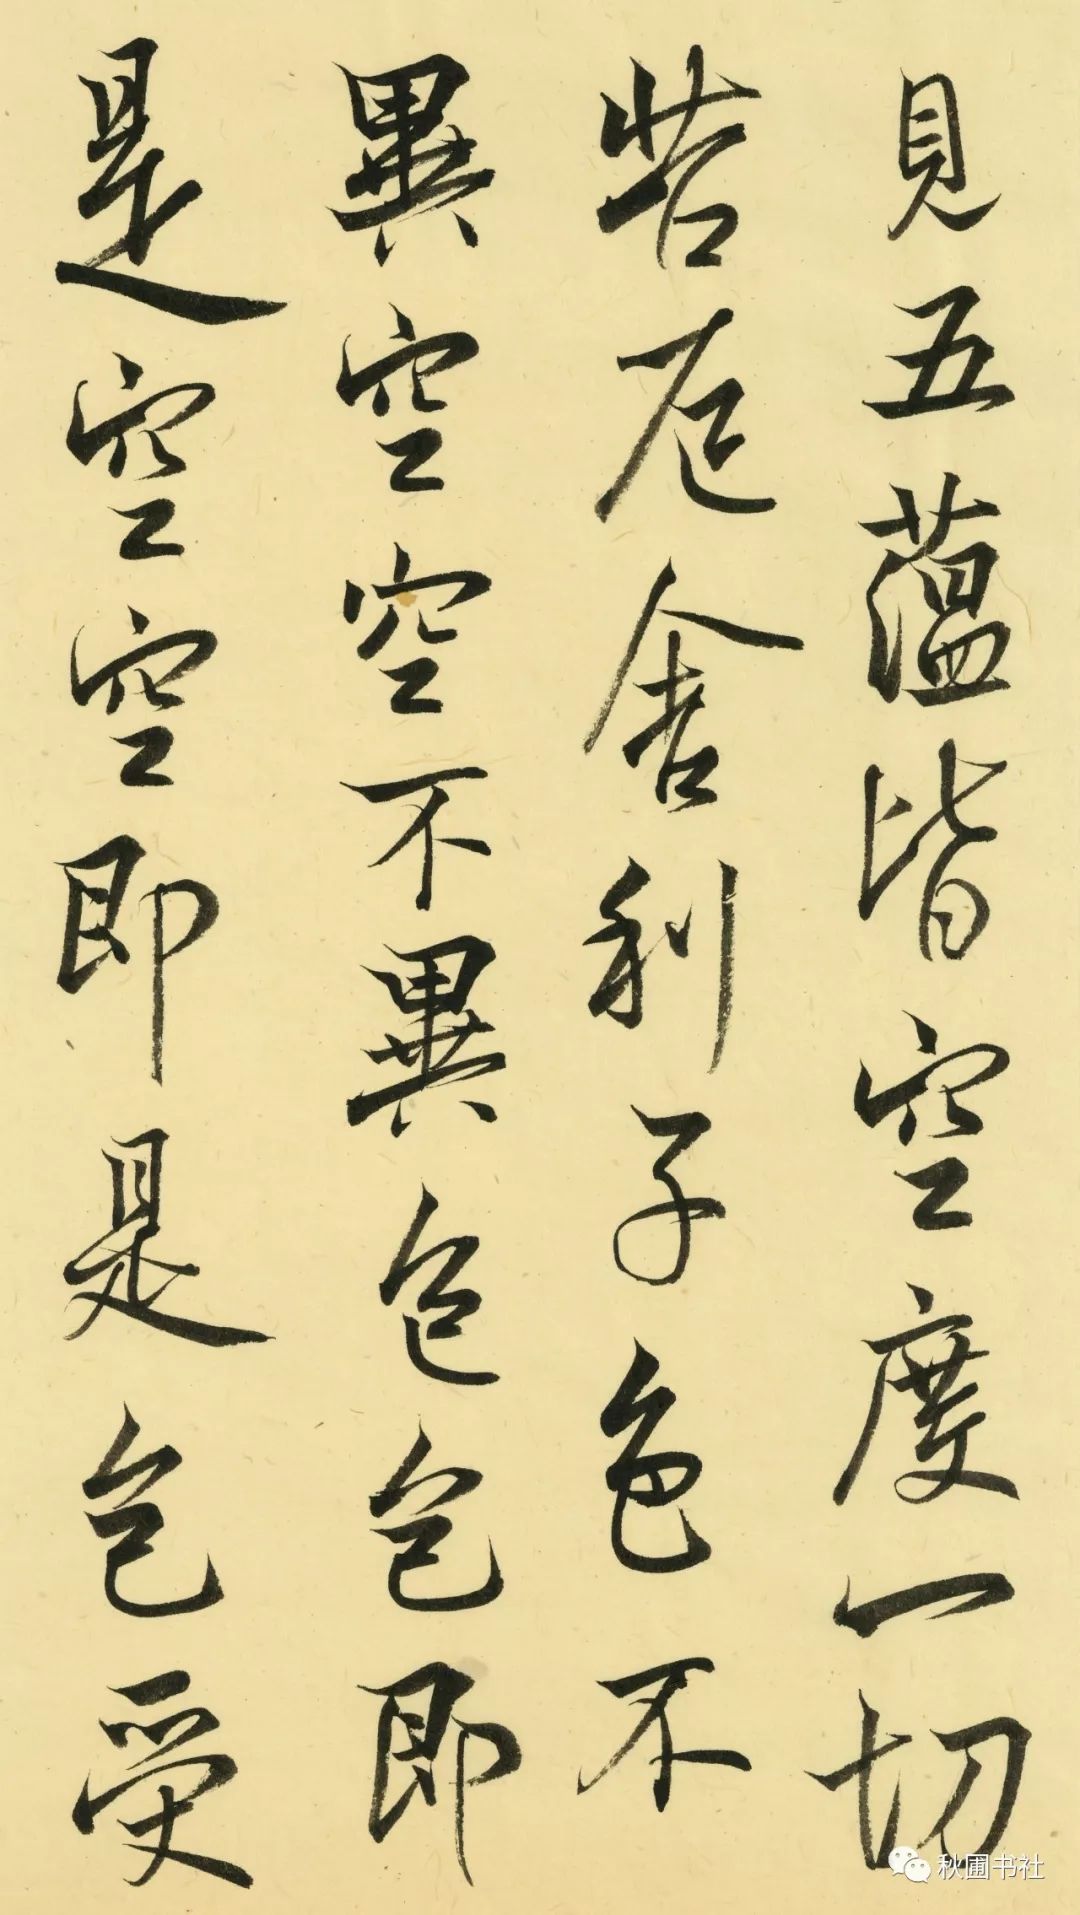 見五蘊皆空度一切
苦厄舍利子色不
異空空不異色色即
是空空即是色受
秋圃书社